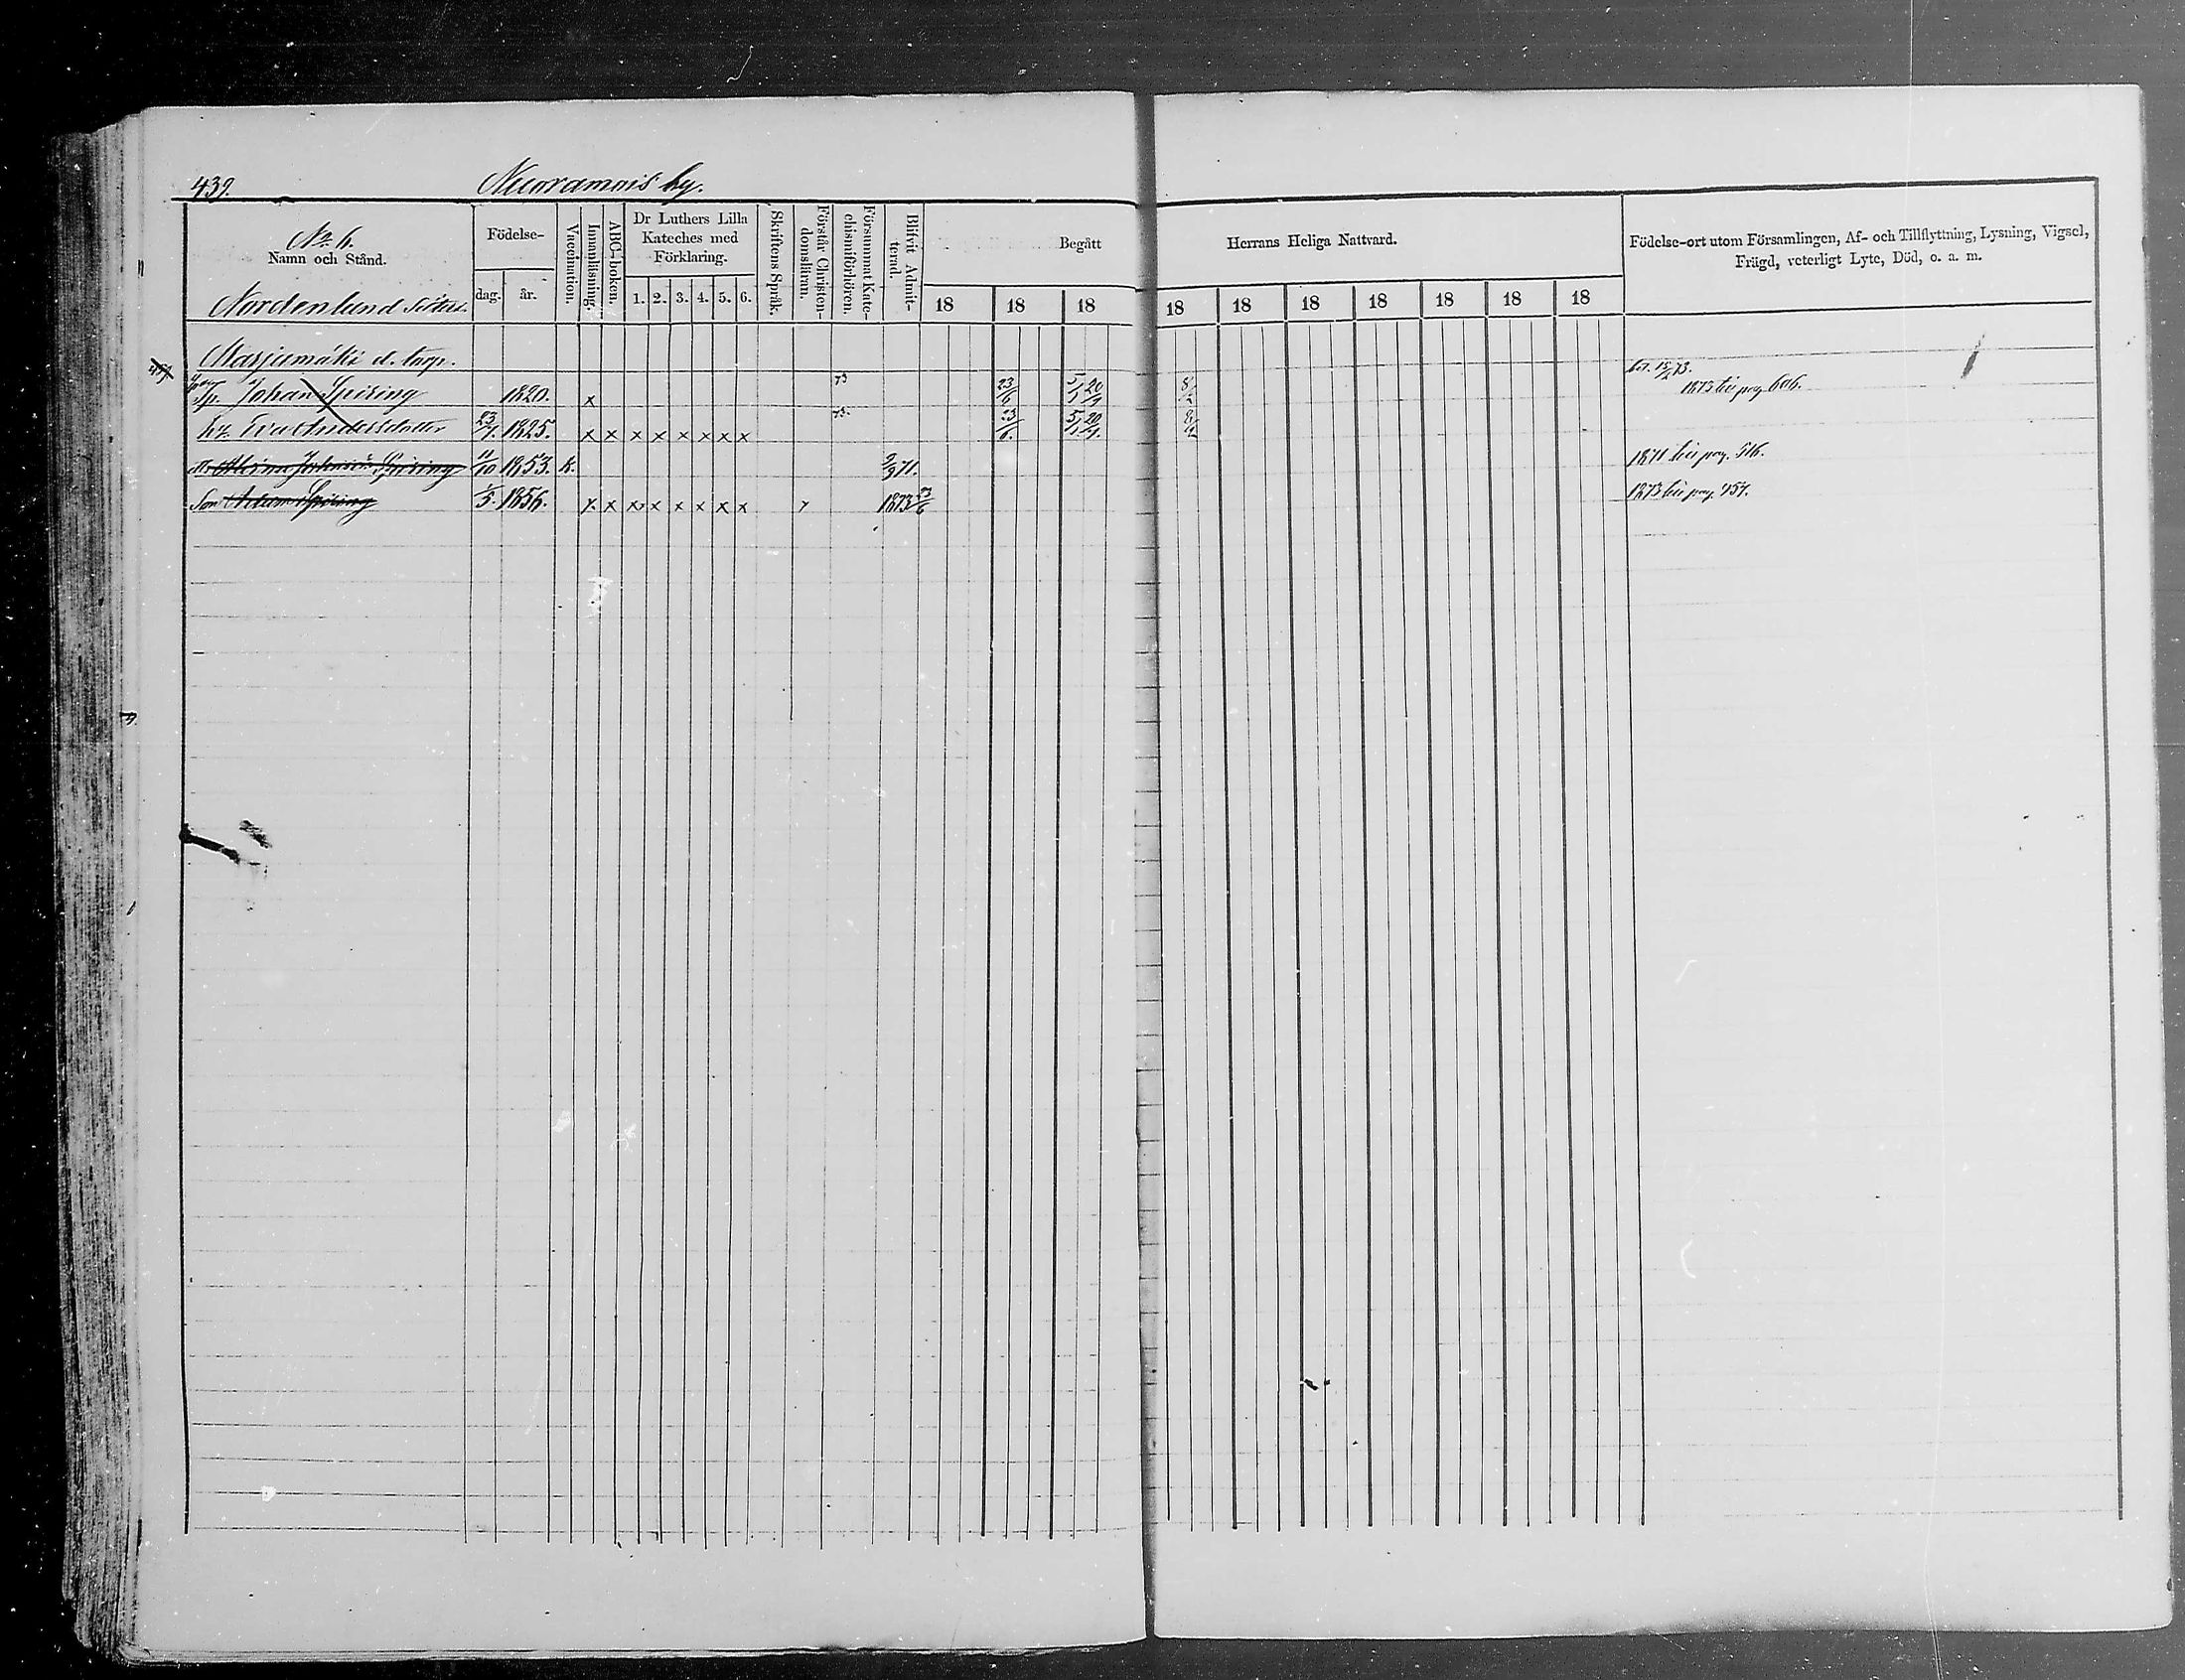 439. Nuoramois by.
No 6.
Namn och Stånd.
Nordenlund
Födelse-
dag. år.
Vaccination.
Innanläsning.
ABC-boken.
Dr Luthers Lilla
Kateches med
Förklaring.
1. 2. 3. 4. 5. 6.
Skriftens Språk.
Förstår Christen-
domsläran.
Försummat Kate-
chismiförhören.
Blifvit Admit-
terad.
Begått Herrans Heliga Nattvard.
18 18 18 18 18 18 18 18 18 18
Födelse-ort utom Församlingen, Af- och Tillflyttning, Lysning, Vigsel,
Frägd, veterligt Lyte, Död, o. a. m.
Marjamäki d. torp.
Johan Spiring 1820. x 73 23/6 5/1 20/9
1873 till pag. 606.
Hu. Eva Andersdotter 23/7. 1825. x x x x x x x x 73. 23/6. 5/1. 20/9.
Johansd:r Spiring 11/10 1853. k. 2/9 71. 1871 till pag. 516.
Son Adam Spiring 1/5. 1856. x x x x x x x x 1873 23/6 1873 till pag. 457.